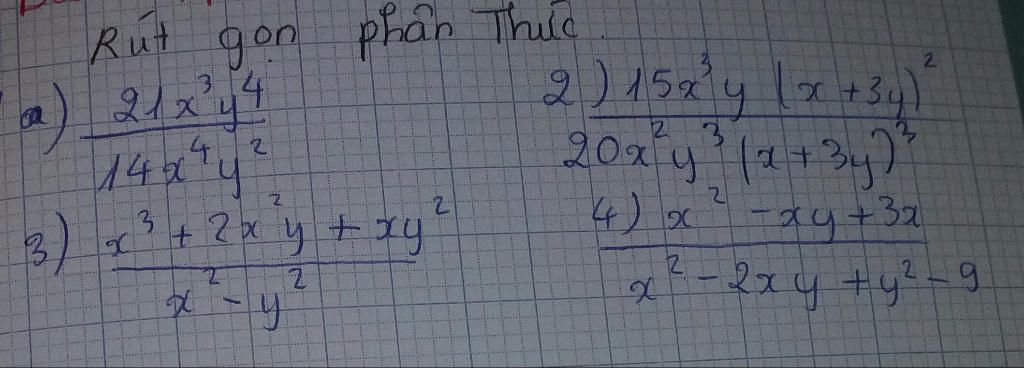 Rút gọn phân Thức.
a) 21x³y⁴ / 14x⁴y²
2) 15x³y (x+3y)² / 20x²y³ (x+3y)³
3) x³ + 2x²y + xy² / x² - y²
4) x² - xy + 3x / x² - 2xy + y² - 9